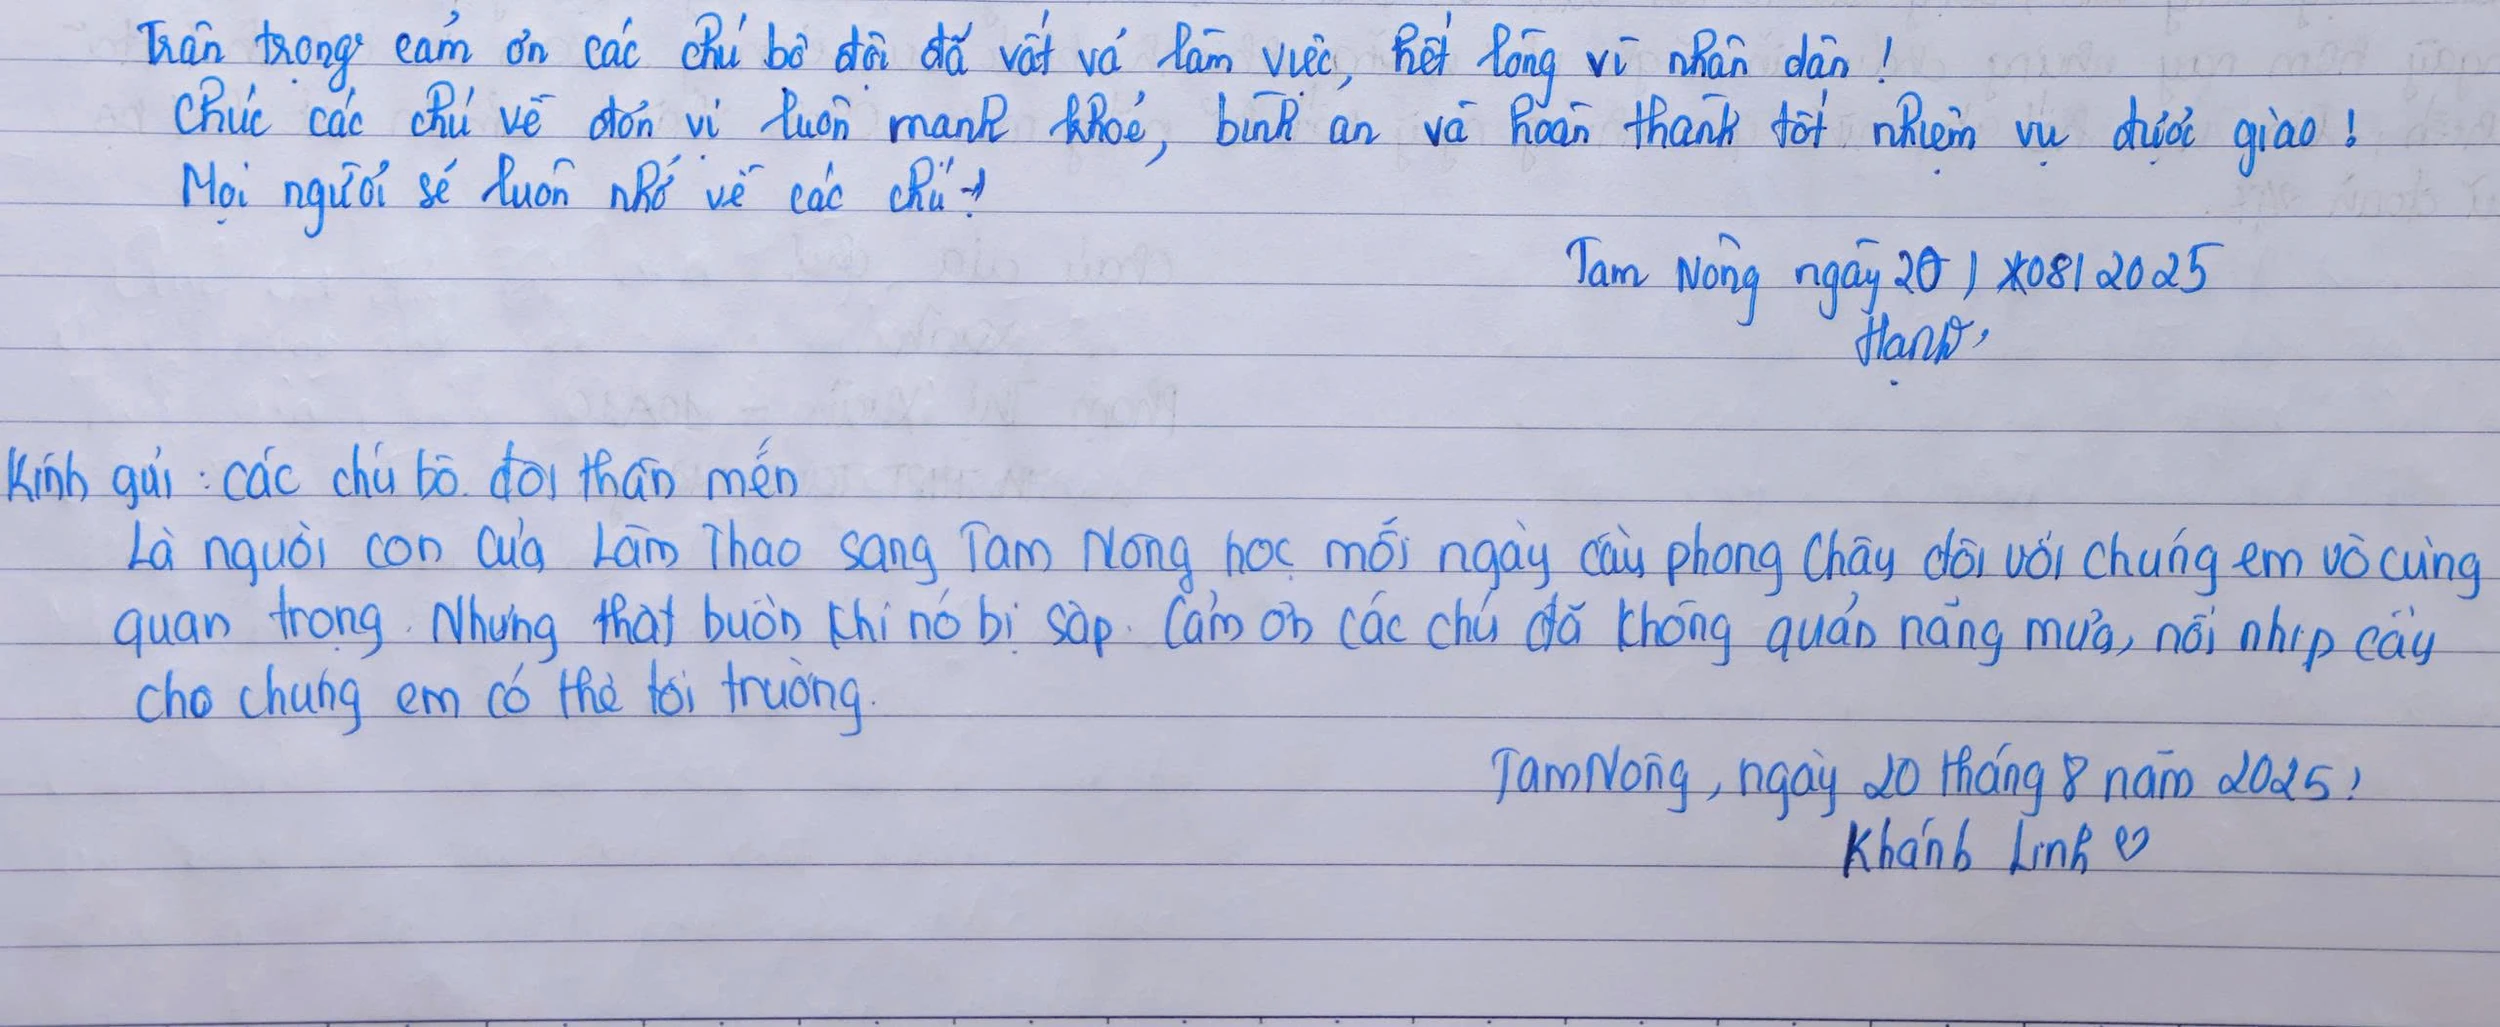 Trân trọng cảm ơn các chú bộ đội đã vất vả làm việc, hết lòng vì nhân dân !
Chúc các chú về đơn vị luôn mạnh khoẻ, bình an và hoàn thành tốt nhiệm vụ được giao !
Mọi người sẽ luôn nhớ về các chú !
Tam Nông ngày 20 / 08 / 2025
Hạnh
Kính gửi : các chú bộ đội thân mến
Là người con của Lâm Thao sang Tam Nông học mỗi ngày cầu phong Châu đối với chúng em vô cùng
quan trọng. Nhưng thật buồn khi nó bị sập. Cảm ơn các chú đã không quản nắng mưa, nối nhịp cầu
cho chúng em có thể tới trường.
Tam Nông, ngày 20 tháng 8 năm 2025
Khánh Linh ♡